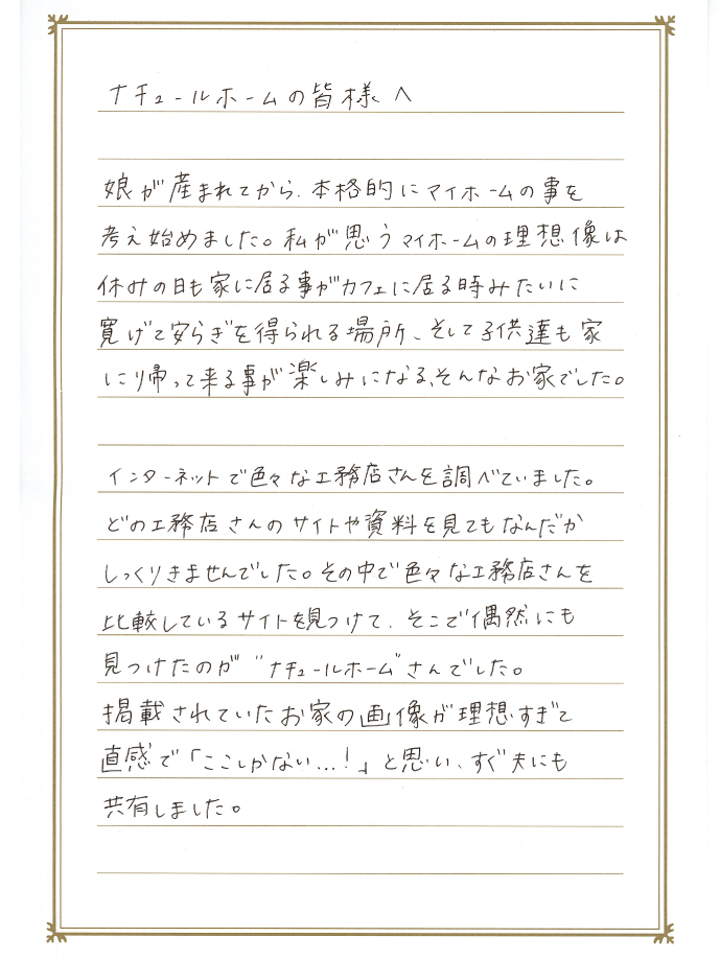 ナチュールホームの皆様へ
娘が産まれてから、本格的にマイホームの事を
考え始めました。私が思うマイホームの理想像は
休みの日も家に居る事がカフェに居る時みたいに
寛げて安らぎを得られる場所、そして子供達も家
に帰って来る事が楽しみになる、そんなお家でした。
インターネットで色々な工務店さんを調べていました。
どの工務店さんのサイトや資料を見てもなんだか
しっくりきませんでした。その中で色々な工務店さんを
比較しているサイトを見つけて、そこで偶然にも
見つけたのが"ナチュールホーム"さんでした。
掲載されていたお家の画像が理想すぎて
直感で「ここしかない...!」と思い、すぐ夫にも
共有しました。